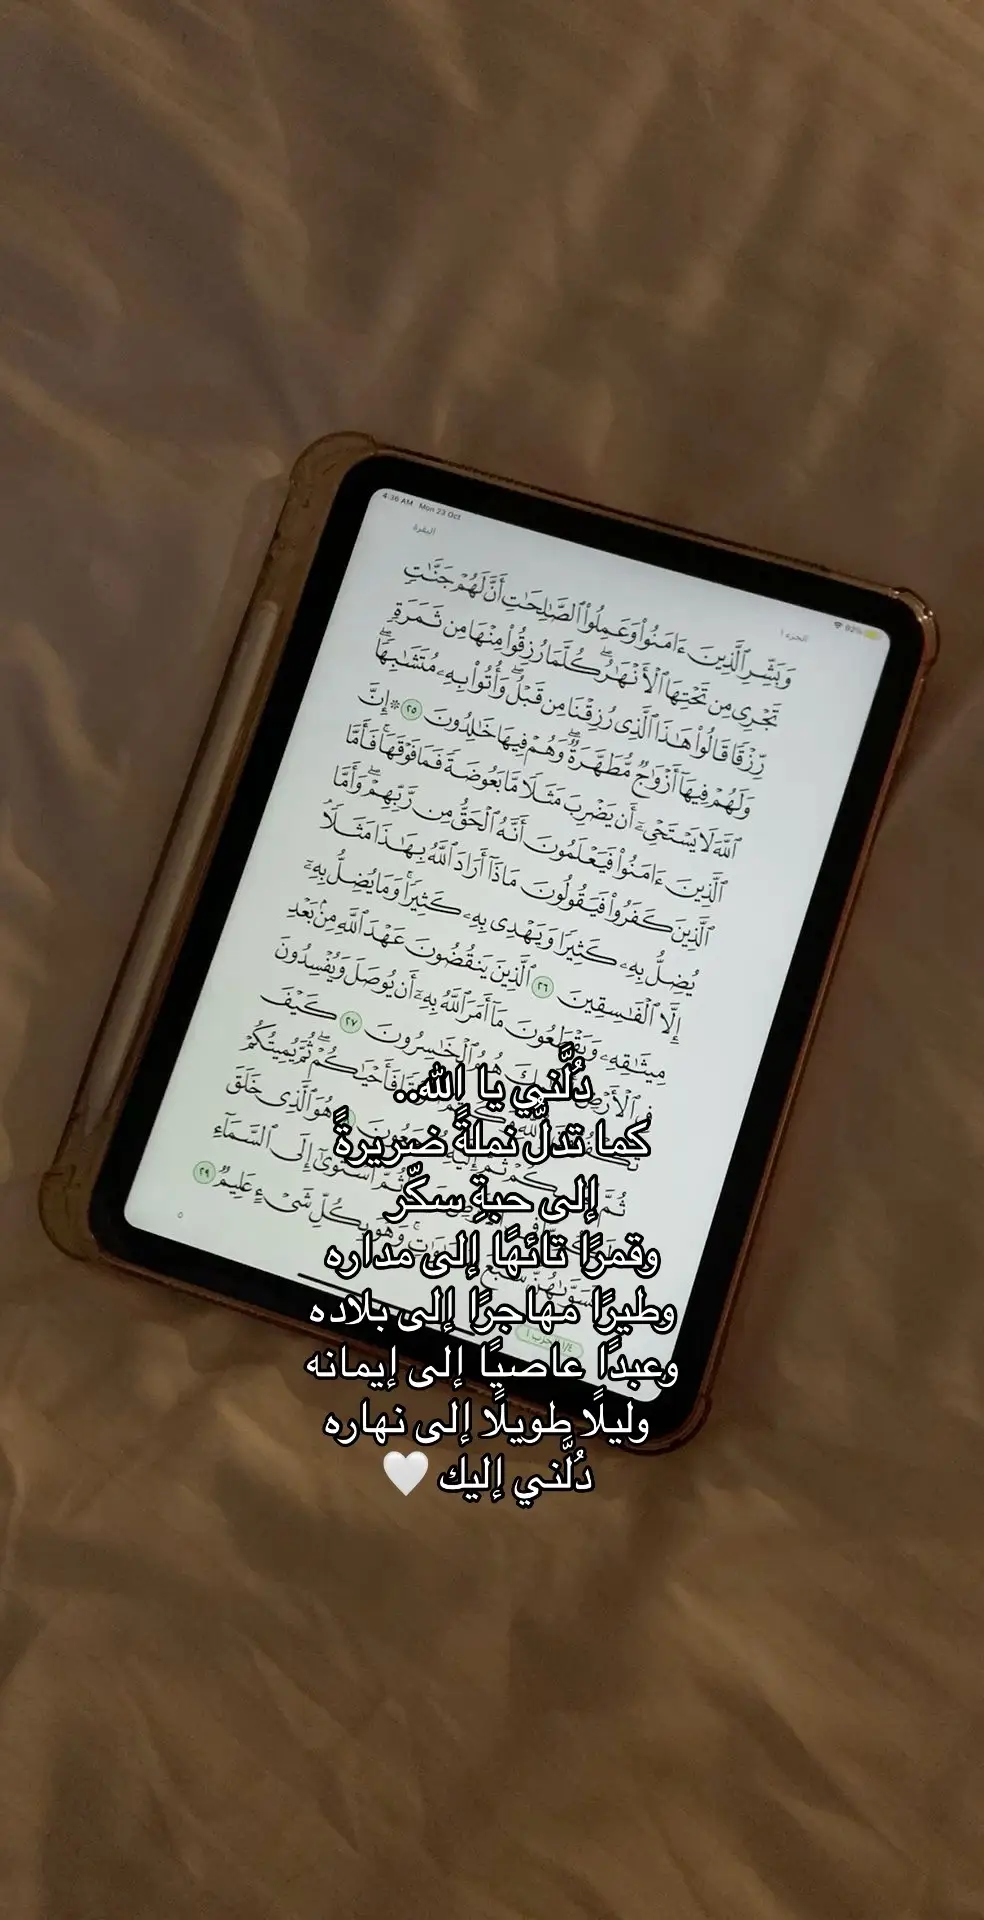 4:36 AM Mon 23 Oct
92%
البقرة
الجزء ١
وَبَشِّرِ ٱلَّذِينَ ءَامَنُوا۟ وَعَمِلُوا۟ ٱلصَّـٰلِحَـٰتِ أَنَّ لَهُمْ جَنَّـٰتٍ
تَجْرِى مِن تَحْتِهَا ٱلْأَنْهَـٰرُ ۖ كُلَّمَا رُزِقُوا۟ مِنْهَا مِن ثَمَرَةٍ
رِّزْقًا قَالُوا۟ هَـٰذَا ٱلَّذِى رُزِقْنَا مِن قَبْلُ ۖ وَأُتُوا۟ بِهِۦ مُتَشَـٰبِهًا ۖ
وَلَهُمْ فِيهَآ أَزْوَٰجٌ مُّطَهَّرَةٌ ۖ وَهُمْ فِيهَا خَـٰلِدُونَ ٢٥ ۞ إِنَّ
ٱللَّهَ لَا يَسْتَحْىِۦٓ أَن يَضْرِبَ مَثَلًا مَّا بَعُوضَةً فَمَا فَوْقَهَا ۚ فَأَمَّا
ٱلَّذِينَ ءَامَنُوا۟ فَيَعْلَمُونَ أَنَّهُ ٱلْحَقُّ مِن رَّبِّهِمْ ۖ وَأَمَّا
ٱلَّذِينَ كَفَرُوا۟ فَيَقُولُونَ مَاذَآ أَرَادَ ٱللَّهُ بِهَـٰذَا مَثَلًا ۘ
يُضِلُّ بِهِۦ كَثِيرًا وَيَهْدِى بِهِۦ كَثِيرًا ۚ وَمَا يُضِلُّ بِهِۦٓ
إِلَّا ٱلْفَـٰسِقِينَ ٢٦ ٱلَّذِينَ يَنقُضُونَ عَهْدَ ٱللَّهِ مِنۢ بَعْدِ
مِيثَـٰقِهِۦ وَيَقْطَعُونَ مَآ أَمَرَ ٱللَّهُ بِهِۦٓ أَن يُوصَلَ وَيُفْسِدُونَ
فِى ٱلْأَرْضِ هُمُ ٱلْخَـٰسِرُونَ ٢٧ كَيْفَ
تَكْفُرُونَ فَأَحْيَـٰكُمْ ۖ ثُمَّ يُمِيتُكُمْ
ثُمَّ ثُمَّ إِلَيْهِ هُوَ ٱلَّذِى خَلَقَ
ثُمَّ ٱسْتَوَىٰٓ إِلَى ٱلسَّمَآءِ
فَسَوَّىٰهُنَّ سَبْعَ وَهُوَ بِكُلِّ شَىْءٍ عَلِيمٌ ٢٩
١/٤ الحزب ١
٥
دُلَّني يا الله..
كما تدلُّ نملةً ضريرةً
إلى حبةِ سكّر
وقمرًا تائهًا إلى مداره
وطيرًا مهاجرًا إلى بلاده
وعبدًا عاصيًا إلى إيمانه
وليلًا طويلًا إلى نهاره
دُلَّني إليك 🤍